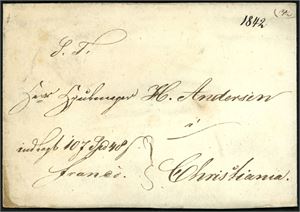 1842
S. T.
Herr Hjulmager H. Andersen
i
indlagt 107 Spd 48 s
franco.
Christiania.